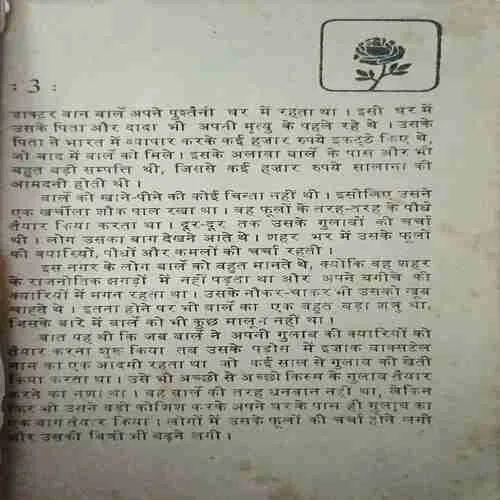 : 3 :
डाक्टर वान बार्ले अपने पुश्तैनी घर में रहता था । इसी घर में
उसके पिता और दादा भी अपनी मृत्यु के पहले रहे थे । उसके
पिता ने भारत में व्यापार करके कई हजार रुपये इकट्ठे किए थे,
जो बाद में बार्ले को मिले । इसके अलावा बार्ले के पास और भी
बहुत बड़ी सम्पत्ति थी, जिससे कई हजार रुपये सालाना की
आमदनी होती थी ।
बार्ले को खाने-पीने की कोई चिन्ता नहीं थी । इसीलिए उसने
एक खर्चीला शौक पाल रखा था । वह फूलों के तरह-तरह के पौधे
तैयार किया करता था । दूर-दूर तक उसके गुलाबों की चर्चा
थी । लोग उसका बाग देखने आते थे । शहर भर में उसके फूलों
की क्यारियों, पौधों और कमलों की चर्चा रहती ।
इस नगर के लोग बार्ले को बहुत मानते थे, क्योंकि वह शहर
के राजनीतिक झगड़ों में नहीं पड़ता था और अपने बगीचे की
क्यारियों में मगन रहता था । उसके नौकर-चाकर भी उसको खूब
चाहते थे । इतना होने पर भी बार्ले का एक बहुत बड़ा शत्रु था,
जिसके बारे में बार्ले को भी कुछ मालूम नहीं था ।
बात यह थी कि जब बार्ले ने अपनी गुलाब की क्यारियों को
तैयार करना शुरू किया तब उसके पड़ौस में इज़ाक बाक्सटेल
नाम का एक आदमी रहता था जो कई साल से गुलाब की खेती
किया करता था । उसे भी अच्छी से अच्छी किस्म के गुलाब तैयार
करने का नशा था । वह बार्ले की तरह धनवान नहीं था, लेकिन
फिर भी उसने बड़ी कोशिश करके अपने घर के पास ही गुलाब का
एक बाग तैयार किया । लोगों में उसके फूलों की चर्चा होने लगी
और उसकी बिक्री भी बढ़ने लगी ।